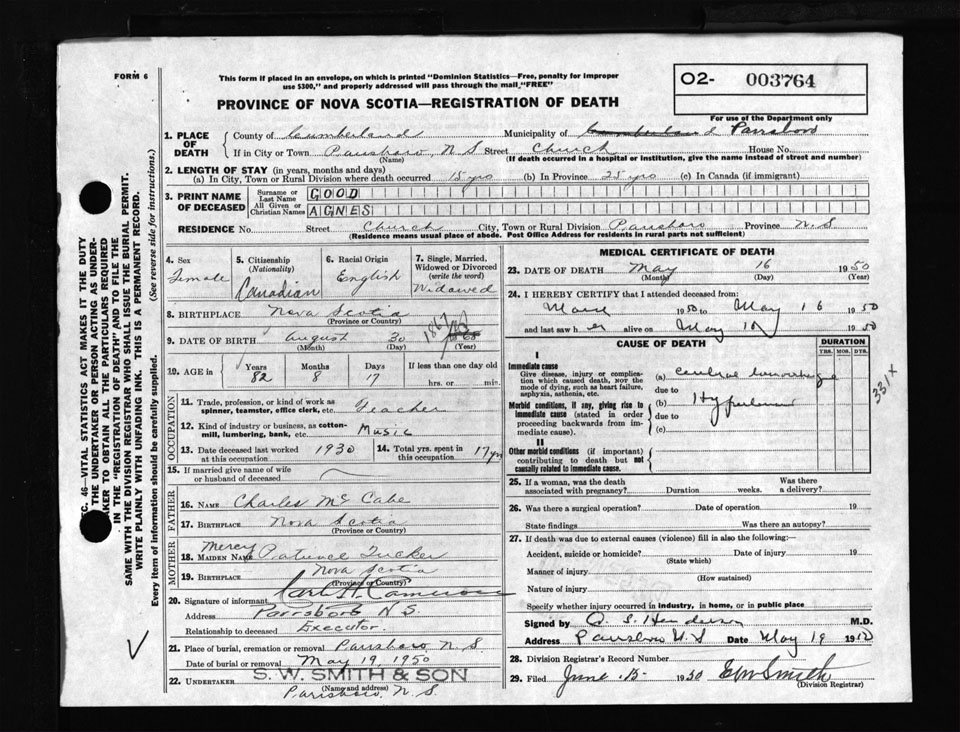 FORM 6
This form if placed in an envelope, on which is printed "Dominion Statistics—Free, penalty for improper
use $300," and properly addressed will pass through the mail "FREE"
PROVINCE OF NOVA SCOTIA—REGISTRATION OF DEATH
O2- 003764
For use of the Department only
1. PLACE OF DEATH { County of Cumberland Municipality of Cumberland Parrsboro
If in City or Town Parrsboro, N.S Street Church House No.
(Name) (If death occurred in a hospital or institution, give the name instead of street and number)
2. LENGTH OF STAY (in years, months and days)
(a) In City, Town or Rural Division where death occurred 15 yrs (b) In Province 25 yrs (c) In Canada (if immigrant)
3. PRINT NAME OF DECEASED { Surname or Last Name GOOD
All Given or Christian Names AGNES
RESIDENCE No. Street Church City, Town or Rural Division Parrsboro Province N.S
(Residence means usual place of abode. Post Office Address for residents in rural parts not sufficient)
4. Sex Female
5. Citizenship (Nationality) Canadian
6. Racial Origin English
7. Single, Married, Widowed or Divorced (write the word) Widowed
8. BIRTHPLACE Nova Scotia
(Province or Country)
9. DATE OF BIRTH August 30 1867
(Month) (Day) (Year)
10. AGE in { Years 82 Months 8 Days 17 If less than one day old
hrs. or min.
OCCUPATION
11. Trade, profession, or kind of work as spinner, teamster, office clerk, etc. Teacher
12. Kind of industry or business, as cotton-mill, lumbering, bank, etc. Music
13. Date deceased last worked at this occupation 1930 14. Total yrs. spent in this occupation 17 yrs
15. If married give name of wife or husband of deceased
FATHER
16. NAME Charles Mc Cabe
17. BIRTHPLACE Nova Scotia
(Province or Country)
MOTHER
18. MAIDEN NAME Mercy Patience Tucker
19. BIRTHPLACE Nova Scotia
(Province or Country)
20. Signature of informant Carl H Cameron
Address Parrsboro N.S.
Relationship to deceased Executor.
21. Place of burial, cremation or removal Parrsboro, N.S.
Date of burial or removal May 19, 1950
22. UNDERTAKER S. W. SMITH & SON
(Name and address)
Parrsboro, N.S.
MEDICAL CERTIFICATE OF DEATH
23. DATE OF DEATH May 16 1950
(Month) (Day) (Year)
24. I HEREBY CERTIFY that I attended deceased from:
1950 to May 16 1950
and last saw her alive on May 1950
CAUSE OF DEATH DURATION
YRS. MOS. DYS.
I
Immediate cause
Give disease, injury or complication which caused death, not the mode of dying, such as heart failure, asphyxia, asthenia, etc.
(a) cerebral hemorrhage
due to
Morbid conditions, if any, giving rise to immediate cause (stated in order proceeding backwards from immediate cause).
(b)
due to
(c)
331X
II
Other morbid conditions (if important) contributing to death but not causally related to immediate cause.
25. If a woman, was the death associated with pregnancy? Duration weeks. Was there a delivery?
26. Was there a surgical operation? Date of operation 19
State findings Was there an autopsy?
27. If death was due to external causes (violence) fill in also the following:—
Accident, suicide or homicide? Date of injury 19
(State which)
Manner of injury
(How sustained)
Nature of injury
Specify whether injury occurred in industry, in home, or in public place
Signed by Henderson M.D.
Address Parrsboro N.S Date May 19 19
28. Division Registrar's Record Number
29. Filed June 15 1950 Smith
(Division Registrar)
EC. 46—VITAL STATISTICS ACT MAKES IT THE DUTY
THE UNDERTAKER OR PERSON ACTING AS UNDER-
AKER TO OBTAIN ALL THE PARTICULARS REQUIRED
IN THE "REGISTRATION OF DEATH" AND TO FILE THE
SAME WITH THE DIVISION REGISTRAR WHO SHALL ISSUE THE BURIAL PERMIT.
WRITE PLAINLY WITH UNFADING INK. THIS IS A PERMANENT RECORD.
Every item of information should be carefully supplied. (See reverse side for instructions.)